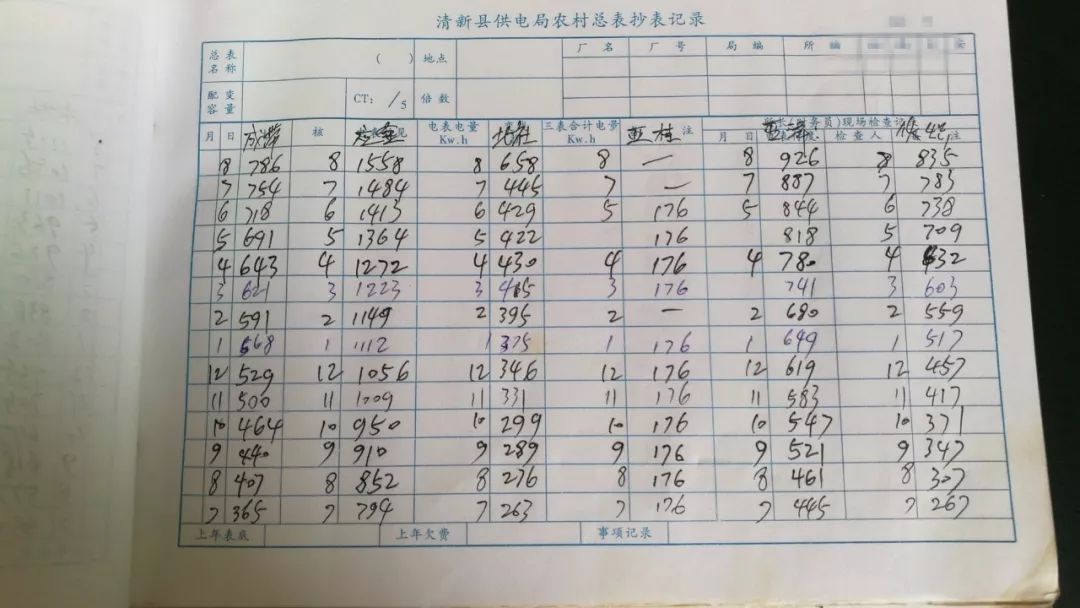 清新县供电局农村总表抄表记录
总表名称 ( ) 地点 厂名 厂号 局编 所编
配变容量 CT: /5 倍数
月 日 核 见 电表电量 Kw.h 三表合计电费 Kw.h 亚村 注 务员)现场检查记 月 日 检查人 注
8 786 8 1558 8 658 8 — 8 926 8 835
7 754 7 1484 7 445 7 — 7 887 7 783
6 718 6 1413 6 429 5 176 5 844 6 738
5 691 5 1364 5 422 176 818 5 709
4 643 4 1272 4 430 4 176 4 780 4 632
3 621 3 1223 3 415 3 176 741 3 603
2 591 2 1149 2 395 2 — 2 680 2 559
1 568 1 1112 1 375 1 176 1 649 1 517
12 529 12 1056 12 346 12 176 12 619 12 457
11 500 11 1009 11 331 11 176 11 583 11 417
10 464 10 950 10 299 10 176 10 547 10 371
9 440 9 910 9 289 9 176 9 521 9 347
8 407 8 852 8 276 8 176 8 461 8 307
7 365 7 794 7 263 7 176 7 445 7 267
上年表底 上年欠费 事项记录